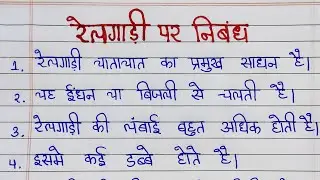 रेलगाड़ी पर निबंध
1. रेलगाड़ी यातायात का प्रमुख साधन है।
2. यह ईंधन या बिजली से चलती है।
3. रेलगाड़ी की लंबाई बहुत अधिक होती है।
4. इसमे कई डब्बे होते है।